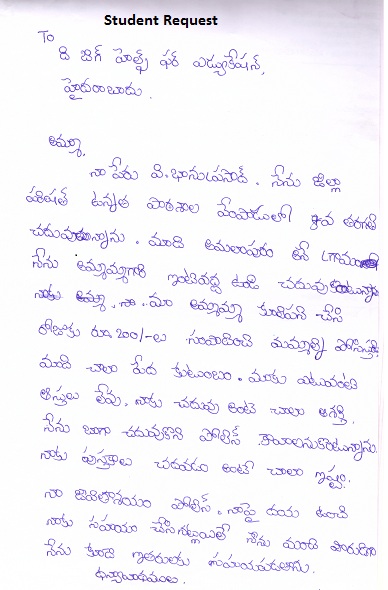 Student Request
To
ది బిగ్ హెల్ప్ ఫర్ ఎడ్యుకేషన్,
హైదరాబాదు.
అమ్మా,
నా పేరు వి. భానుప్రసాద్. నేను జిల్లా
పరిషత్ ఉన్నత పాఠశాల వేంపాడులో వ తరగతి
చదువుతున్నాను. మాది అమలాపురం అనే గ్రామం
నేను అమ్మమ్మగారి ఇంటివద్ద ఉండి చదువుకుంటున్నాను
నాకు అమ్మా, నా. మా అమ్మమ్మ కూలిపని చేసి
రోజుకు రూ.200/-లు సంపాదించి మమ్మల్ని పోషిస్తుంది
మాది చాలా పేద కుటుంబం. మాకు ఎటువంటి
ఆస్తులు లేవు. నాకు చదువు అంటే చాలా ఆసక్తి.
నేను బాగా చదువుకొని పోలీస్ కావాలనుకుంటున్నాను.
నాకు పుస్తకాలు చదవడం అంటే చాలా ఇష్టం.
నా జీవితాశయం పోలీస్. నాపై దయ ఉంచి
నాకు సహాయం చేసినట్లయితే నేను మంచి
నేను కూడా ఇతరులకు సహాయపడతాను.
ధన్యవాదములు.